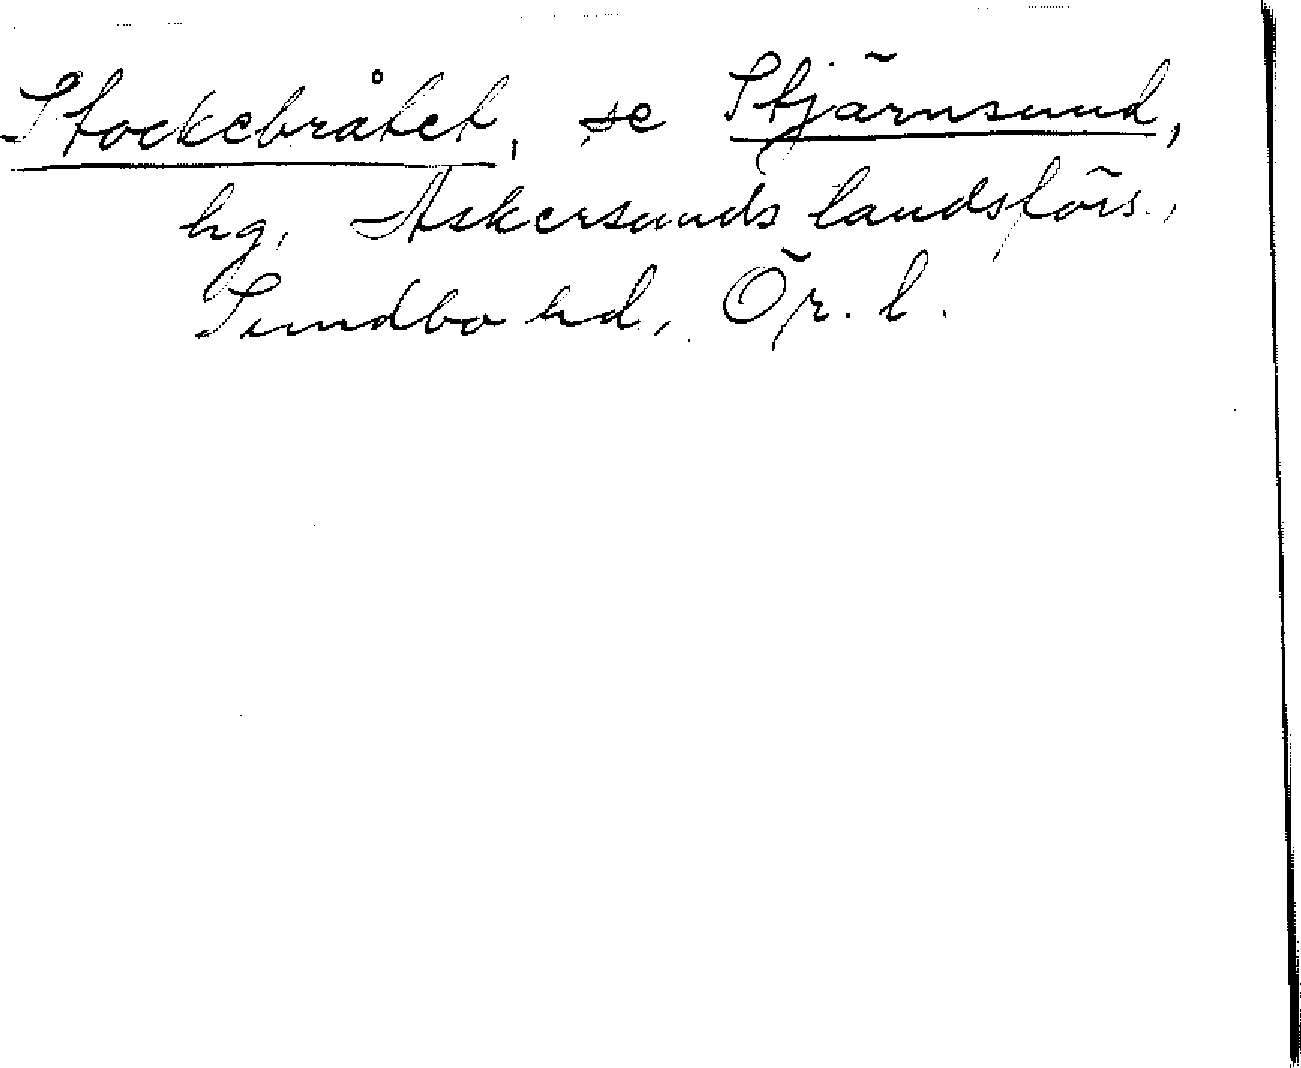 Stockebråtet, se Stjärnsund,
hg, Askersunds landsförs.,
Sundbo hd, Ör. l.